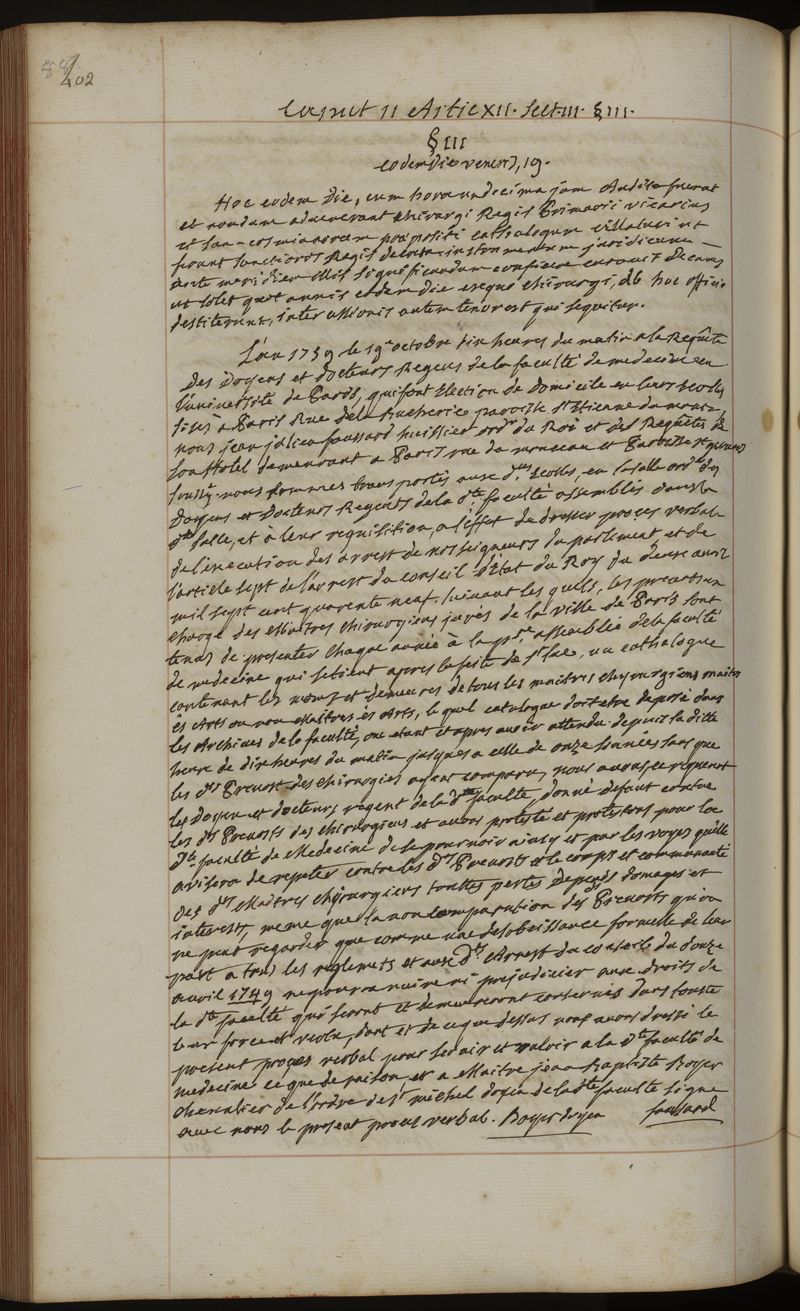 402
Caput II Artic XII. Sect. III. § III.
§ III
eodem Die veneris, 19.
Hoc eodem Die, cum hora undecima jam Audita fuerat
et nondum advenerant chirurgi Regis Primarii vicarius
et San-cosmianorum præpositi catalogum
sanctioris Regis instrumentum juridicum
ante meridiem illis significandum conficere curavit Decanus
ut solet quotannis eodem Die exequi chirurgi, ab hoc officio
destiterunt, autem tenor est qui sequitur.
L'an 1759 le 19e octobre dix heures du matin a la Requête
Des Doyens et Docteurs Regens de la faculté de medecine en
l'université de Paris, qui font Election de Domicile en leurs Ecoles
sises à Paris Rue de la Bucherie paroisse St Etienne du mont,
nous jean julien foussard huissier ordre du Roi et des Requêtes de
son Hotel demeurant a Paris rue du monceau et Paroisse St gervais
soussé. nous sommes transportés aux dtes Ecoles, en la salle ordre des
Doyens et Docteurs Regents de la dte faculté assemblés dans la
dte salle, et à leur requisition, a l'effet de dresser proces verbal
de l'execution des arrest de nosseigneurs du parlement et de
l'article sept de l'arrest du conseil d'Etat du Roy du douze avril
mil sept cent quarente neuf, suivant les quels, les prevosts en
charge des Maitres chirurgiens jurés de la ville de Paris sont
tenus de presenter chaque année à la pre assemblée de la faculté
de medecine qui se tient apres la feste de st luc, un cathalogue
contenant les noms et demeures de tous les maitres chyrurgiens maitres
ès Arts ou non Maitres ès Arts, le quel catalogue doit etre deposé dans
les Archives de la faculté, ou etant et apres avoir attendu depuis la ditte
heure de dix heures du matin jusques a celle de onze sonnées sans que
les dts Prevost des chirurgiens ayent comparu, nous avons, ce requerant
les Doyen et docteurs regent de la dte faculté, donné defaut contre
les dts Prevosts des chirurgiens et avons protesté et protestons pour la
dte faculté de Medecine de se pourvoir ainsy et par les voyes qu'elle
avisera de repeter contre les dts Prevosts et le corps et communauté
des dts Maitres chyrurgiens touttes pertes Depends domages et
interests, meme que la non comparution des dts Prevosts qu'on
ne peut regarder que comme une desobeissance formelle de leur
part a tous les reglemets et aux dts Arrest du conseil du douze
avril 1749 ne pourra nuire ni prejudicier aux droits de
la dte faculté qui seront et demeureront conservés dans toutte
leur force et vertu, dont et de ce que dessus nous avons dressé le
present proces verbal pour servir et valoir a la dte faculté de
medecine ce que de raison, et a Maitre jean Baptiste Boyer
chevalier de l'ordre de st michel doyen de la dte faculté signe
avec nous le present proces verbal. Boyer doyen foussard